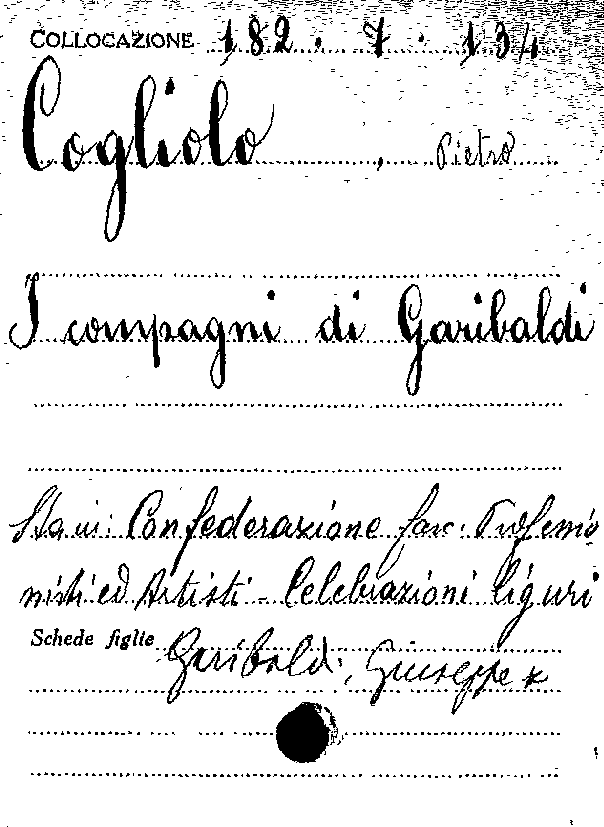 COLLOCAZIONE 182. 7. 134
Cogliolo, Pietro
I compagni di Garibaldi
Sta in: Confederazione fasc. Professio
nisti ed Artisti - Celebrazioni liguri
Schede figlie Garibaldi, Giuseppe x